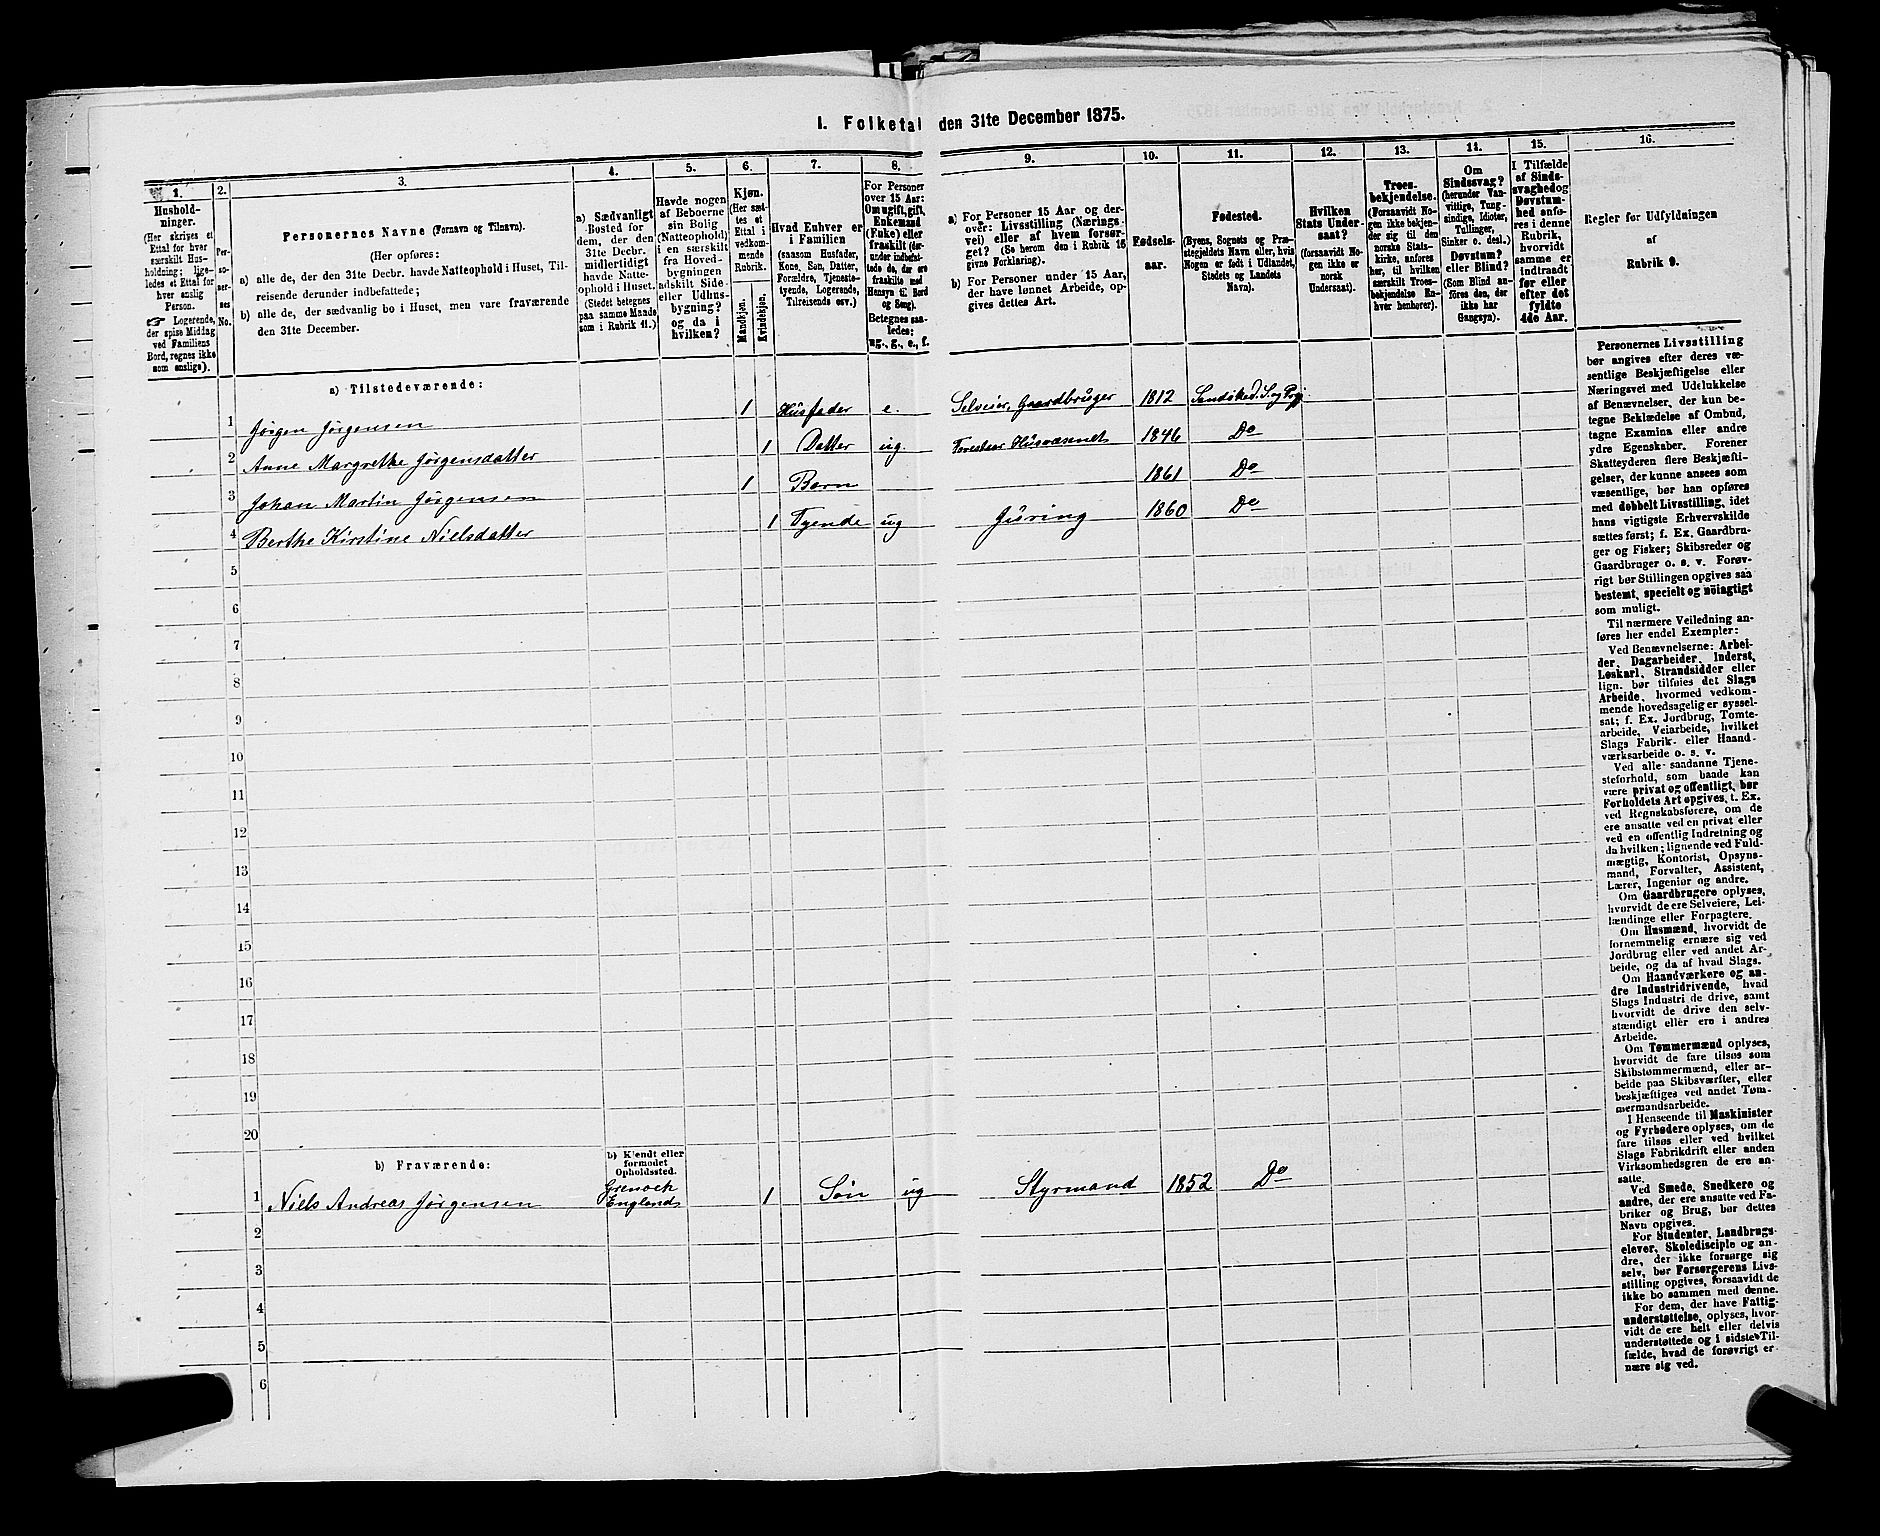 I. Folketal den 31te December 1875.
1.
Hushold-
ninger.
(Her skrives et
Ettal for hver
særskilt Hus-
holdning; lige-
ledes et Ettal for
hver enslig
Person.
☞ Logerende,
der spise Middag
ved Familiens
Bord, regnes ikke
som enslige).
2.
Per-
so-
ner-
nes
No.
3.
Personernes Navne (Fornavn og Tilnavn).
(Her opføres:
a) alle de, der den 31te Decbr. havde Natteophold i Huset, Til-
reisende derunder indbefattede;
b) alle de, der sædvanlig bo i Huset, men vare fraværende
den 31te December.
4.
a) Sædvanligt
Bosted for
dem, der den
31te Decbr.
midlertidigt
havde Natte-
ophold i Huset.
(Stedet betegnes
paa samme Maade
som i Rubrik 11.)
5.
Havde nogen
af Beboerne
sin Bolig
(Natteophold)
i en særskilt
fra Hoved-
bygningen
adskilt Side-
eller Udhus-
bygning?
og da i
hvilken?
6.
Kjøn.
(Her sæt-
tes et
Ettal i
vedkom-
mende
Rubrik.
Mandkjøn.
Kvindekjøn.
7.
Hvad Enhver er
i Familien
(saasom Husfader,
Kone, Søn, Datter,
Forældre, Tjeneste-
tyende, Logerende,
Tilreisende osv.)
8.
For Personer
over 15 Aar:
Om ugift, gift,
Enkemand
(Enke) eller
fraskilt (der-
under indbefat-
tede de, der ere
fraskilte med
Hensyn til Bord
og Seng).
Betegnes saa-
ledes:
ug., g., e., f.
9.
a) For Personer 15 Aar og der-
over: Livsstilling (Nærings-
vei) eller af hvem forsør-
get? (Se herom den i Rubrik 16
givne Forklaring).
b) For Personer under 15 Aar,
der have lønnet Arbeide, op-
gives dettes Art.
10.
Fødsels-
aar.
11.
Fødested.
(Byens, Sognets og Præ-
stegjeldets Navn eller, hvis
Nogen er født i Udlandet,
Stedets og Landets
Navn).
12.
Hvilken
Stats Under-
saat?
(forsaavidt No-
gen ikke er
norsk
Undersaat).
13.
Troes-
bekjendelse.
(Forsaavidt No-
gen ikke bekjen-
der sig til den
norske Stats-
kirke, anføres
her, til hvilken
særskilt Troes-
bekjendelse En-
hver henhører).
14.
Om
Sindssvag?
(herunder Van-
vittige, Tung-
sindige, Idioter,
Tullinger,
Sinker o. desl.)
Døvstum?
eller Blind?
(Som Blind an-
føres den, der
ikke har
Gangsyn).
15.
I Tilfælde
af Sinds-
svaghed og
Døvstum-
hed anfø-
res i denne
Rubrik,
hvorvidt
samme er
indtraadt
før eller
efter det
fyldte
4de Aar.
16.
Regler for Udfyldningen
af
Rubrik 9.
a) Tilstedeværende:
1 Jørgen Jørgensen 1 Husfader e. Selveier, Gaardbruger 1812 Sandøked. S. og Prg
2 Anne Margrethe Jørgensdatter 1 Datter ug. Forestaar Husvæsenet 1846 Do
3 Johan Martin Jørgensen 1 Barn 1861 Do
4 Berthe Kirstine Nielsdatter 1 Tyende ug Jüring 1860 Do
5
6
7
8
9
10
11
12
13
14
15
16
17
18
19
20
b) Fraværende:
b) Kjendt eller
formodet
Opholdssted.
1 Niels Andreas Jørgensen Grenock England 1 Søn ug Styrmand 1852 Do
2
3
4
5
6
Personernes Livsstilling
bør angives efter deres væ-
sentlige Beskjæftigelse eller
Næringsvei med Udelukkelse
af Benævnelser, der kun be-
tegne Beklædelse af Ombud,
tagne Examina eller andre
ydre Egenskaber. Forener
Skatteyderen flere Beskjæfti-
gelser, der kunne ansees som
væsentlige, bør han opføres
med dobbelt Livsstilling, idet
hans vigtigste Erhvervskilde
sættes først; f. Ex. Gaardbru-
ger og Fisker; Skibsreder og
Gaardbruger o. s. v. Forøv-
rigt bør Stillingen opgives saa
bestemt, specielt og nöiagtigt
som muligt.
Til nærmere Veiledning an-
føres her endel Exempler:
Ved Benævnelserne: Arbei-
der, Dagarbeider, Inderst,
Løskarl, Strandsidder eller
lign. bør tilføies det Slags
Arbeide, hvormed vedkom-
mende hovedsagelig er syssel-
sat; f. Ex. Jordbrug, Tomte-
arbeide, Veiarbeide, hvilket
Slags Fabrik- eller Haand-
værksarbeide o. s. v.
Ved alle saadanne Tjene-
steforhold, som baade kan
være privat og offentligt, bør
Forholdets Art opgives, t. Ex.
ved Regnskabsførere, om de
ere ansatte ved en privat eller
ved en offentlig Indretning og
da hvilken; lignende ved Fuld-
mægtig, Kontorist, Opsyns-
mand, Forvalter, Assistent,
Lærer, Ingeniør og andre.
Om Gaardbrugere oplyses,
hvorvidt de ere Selveiere, Lei-
lændinge eller Forpagtere.
Om Husmænd, hvorvidt de
fornemmelig ernære sig ved
Jordbrug eller ved andet Ar-
beide, og da af hvad Slags.
Om Haandværkere og an-
dre Industridrivende, hvad
Slags Industri de drive, samt
hvorvidt de drive den selv-
stændigt eller ere i andres
Arbeide.
Om Tømmermænd oplyses,
hvorvidt de fare tilsøs som
Skibstømmermænd, eller ar-
beide paa Skibsværfter, eller
beskjæftiges ved andet Tøm-
mermandsarbeide.
I Henseende til Maskinister
og Fyrbødere oplyses, om de
fare tilsøs eller ved hvilket
Slags Fabrikdrift eller anden
Virksomhedsgren de ere an-
satte.
Ved Smede, Snedkere og
andre, der ere ansatte ved Fa-
briker og Brug, bør dettes
Navn opgives.
For Studenter, Landbrugs-
elever, Skoledisciple og an-
dre, der ikke forsørge sig
selv, bør Forsørgerens Livs-
stilling opgives, forsaavidt de
ikke bo sammen med denne.
For dem, der have Fattig-
understøttelse, oplyses, hvor-
vidt de ere helt eller delvis
understøttede og i sidste Til-
fælde, hvad de forøvrigt er-
nære sig ved.